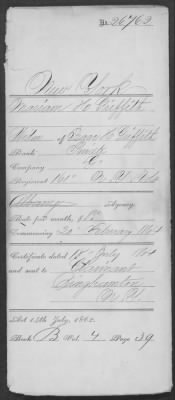 No. 26762
New York
Mariam H Griffith
Widow of B H Griffith
Rank Priv
Company C
Regiment 161 N. Y. Vols
Albany Agency
Rate per month, $8
Commencing 20 February 1864
Certificate dated 18 July 1864
and sent to Claimant
Binghamton
N. Y.
Act 14th July, 1862.
Book B Vol. 4 Page 39